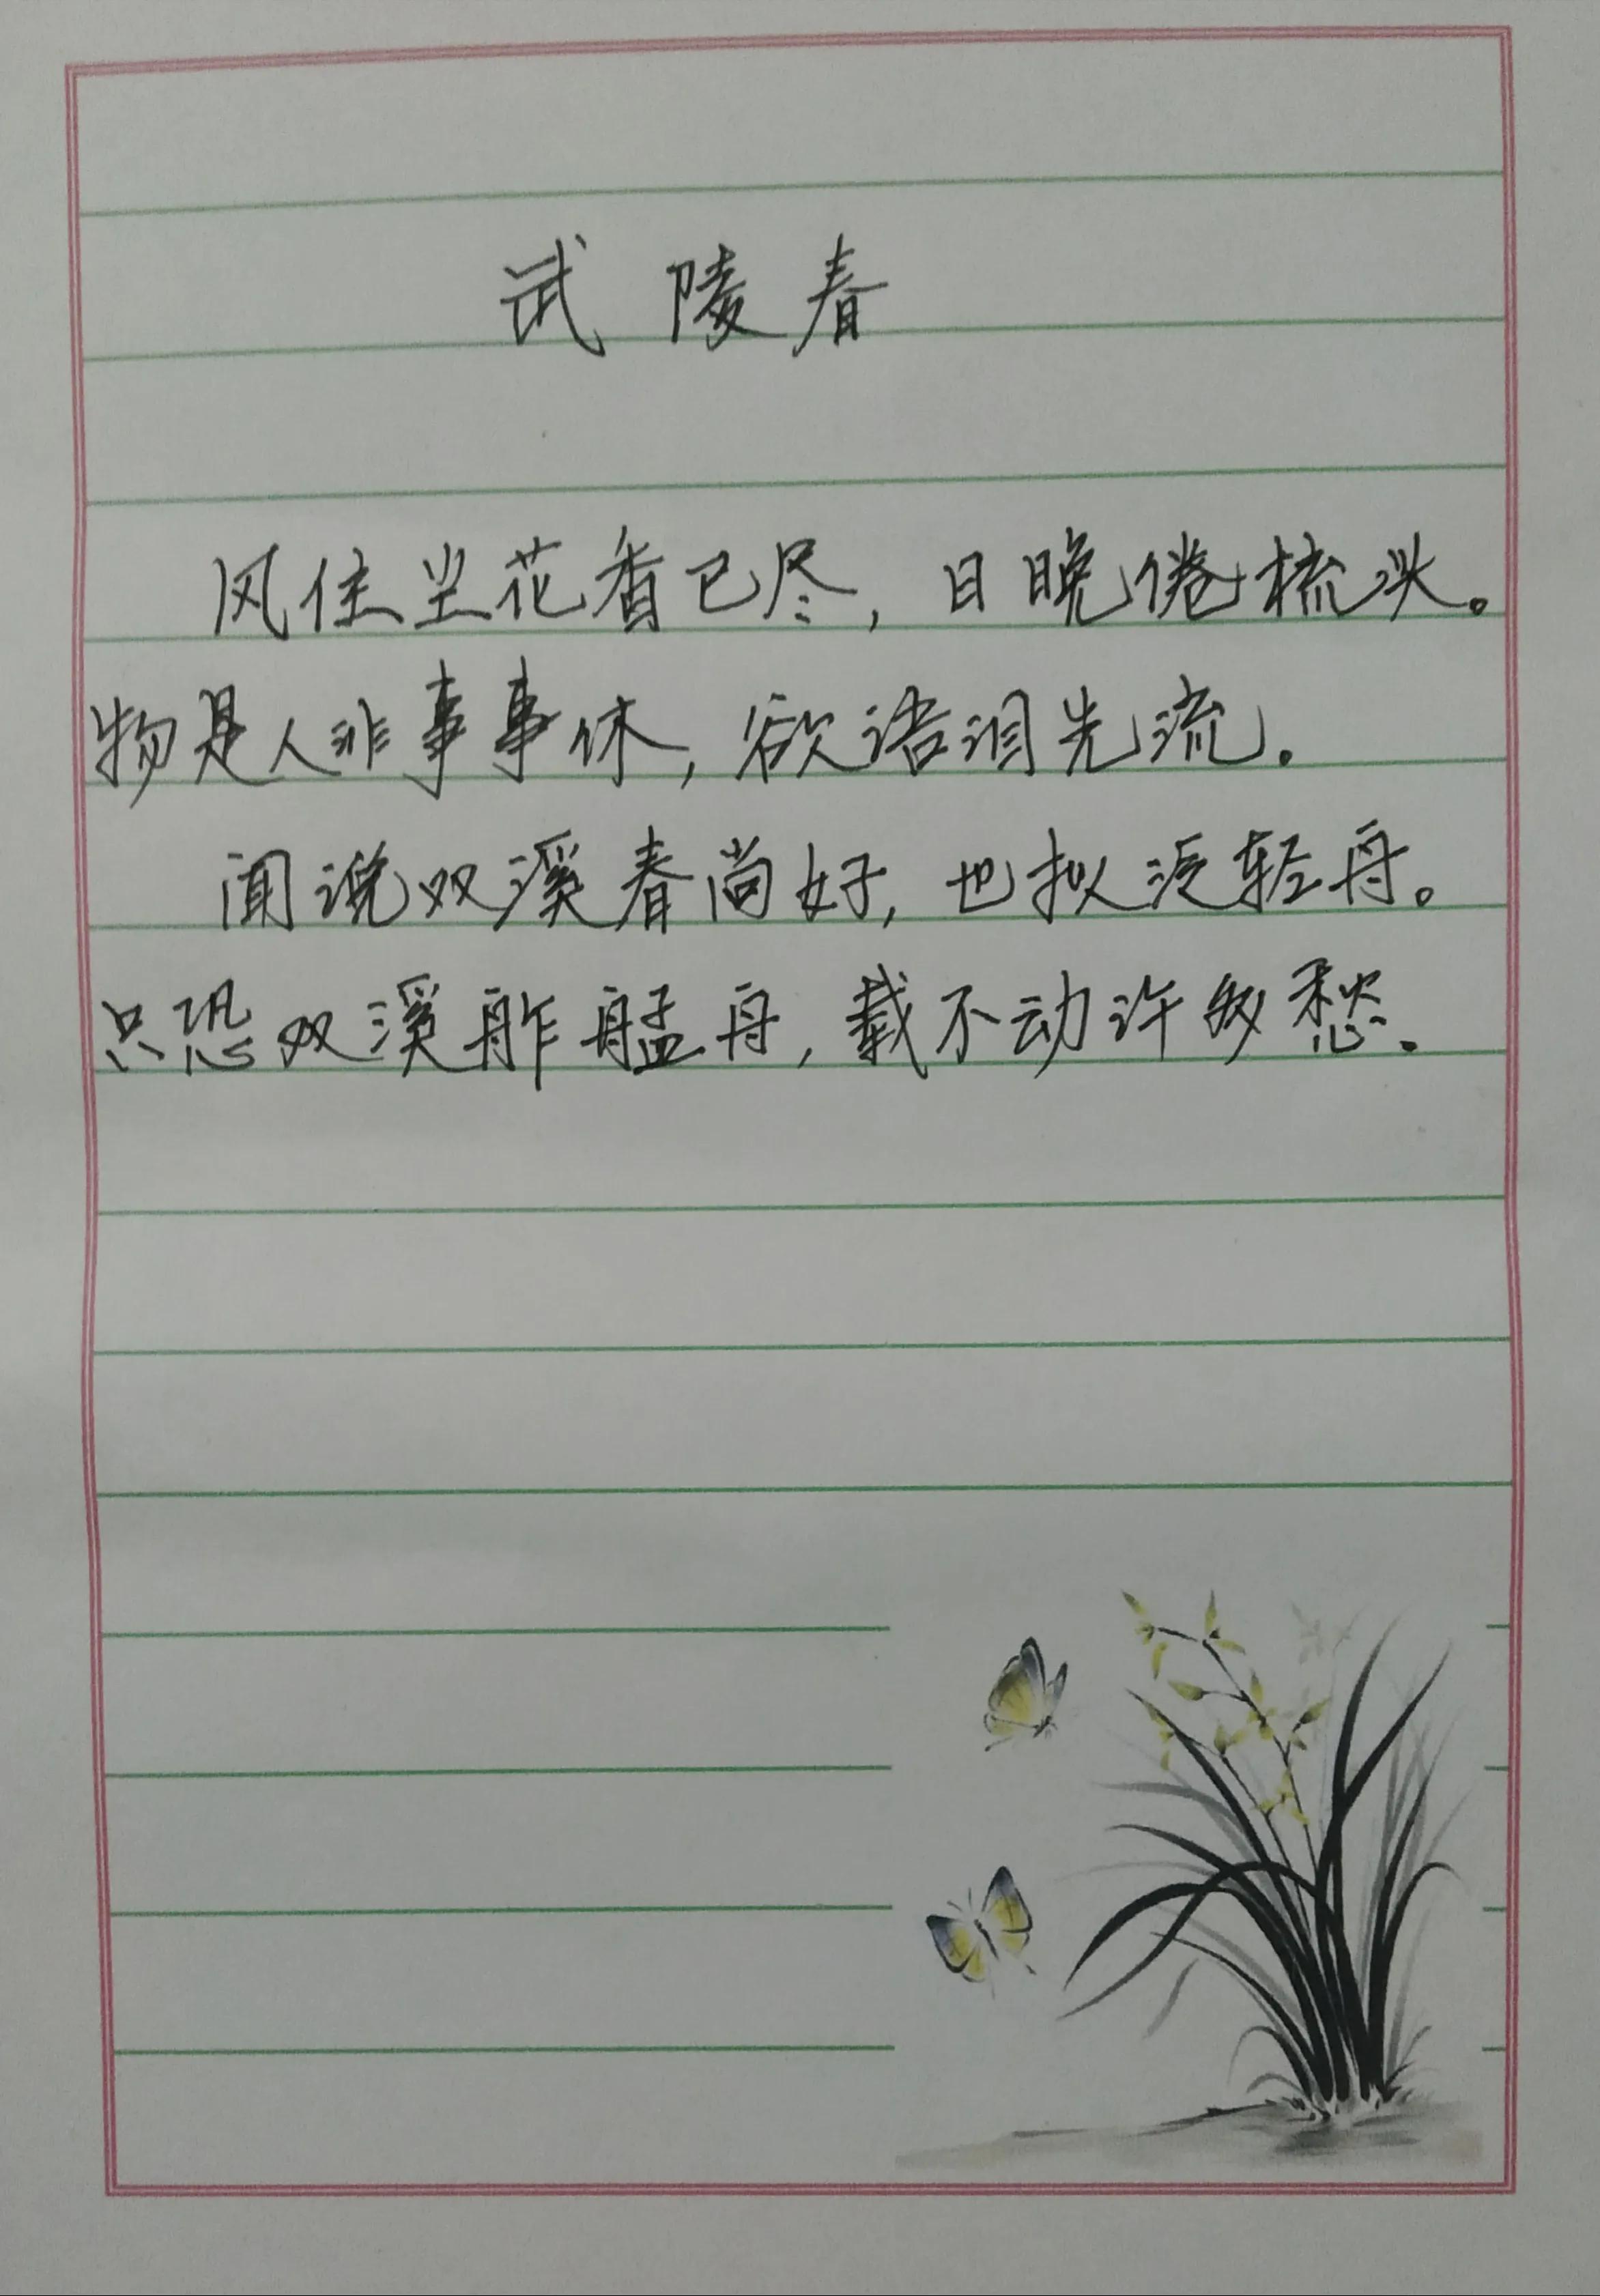 武陵春
风住尘花香已尽，日晚倦梳头。
物是人非事事休，欲语泪先流。
闻说双溪春尚好，也拟泛轻舟。
只恐双溪舴艋舟，载不动许多愁。